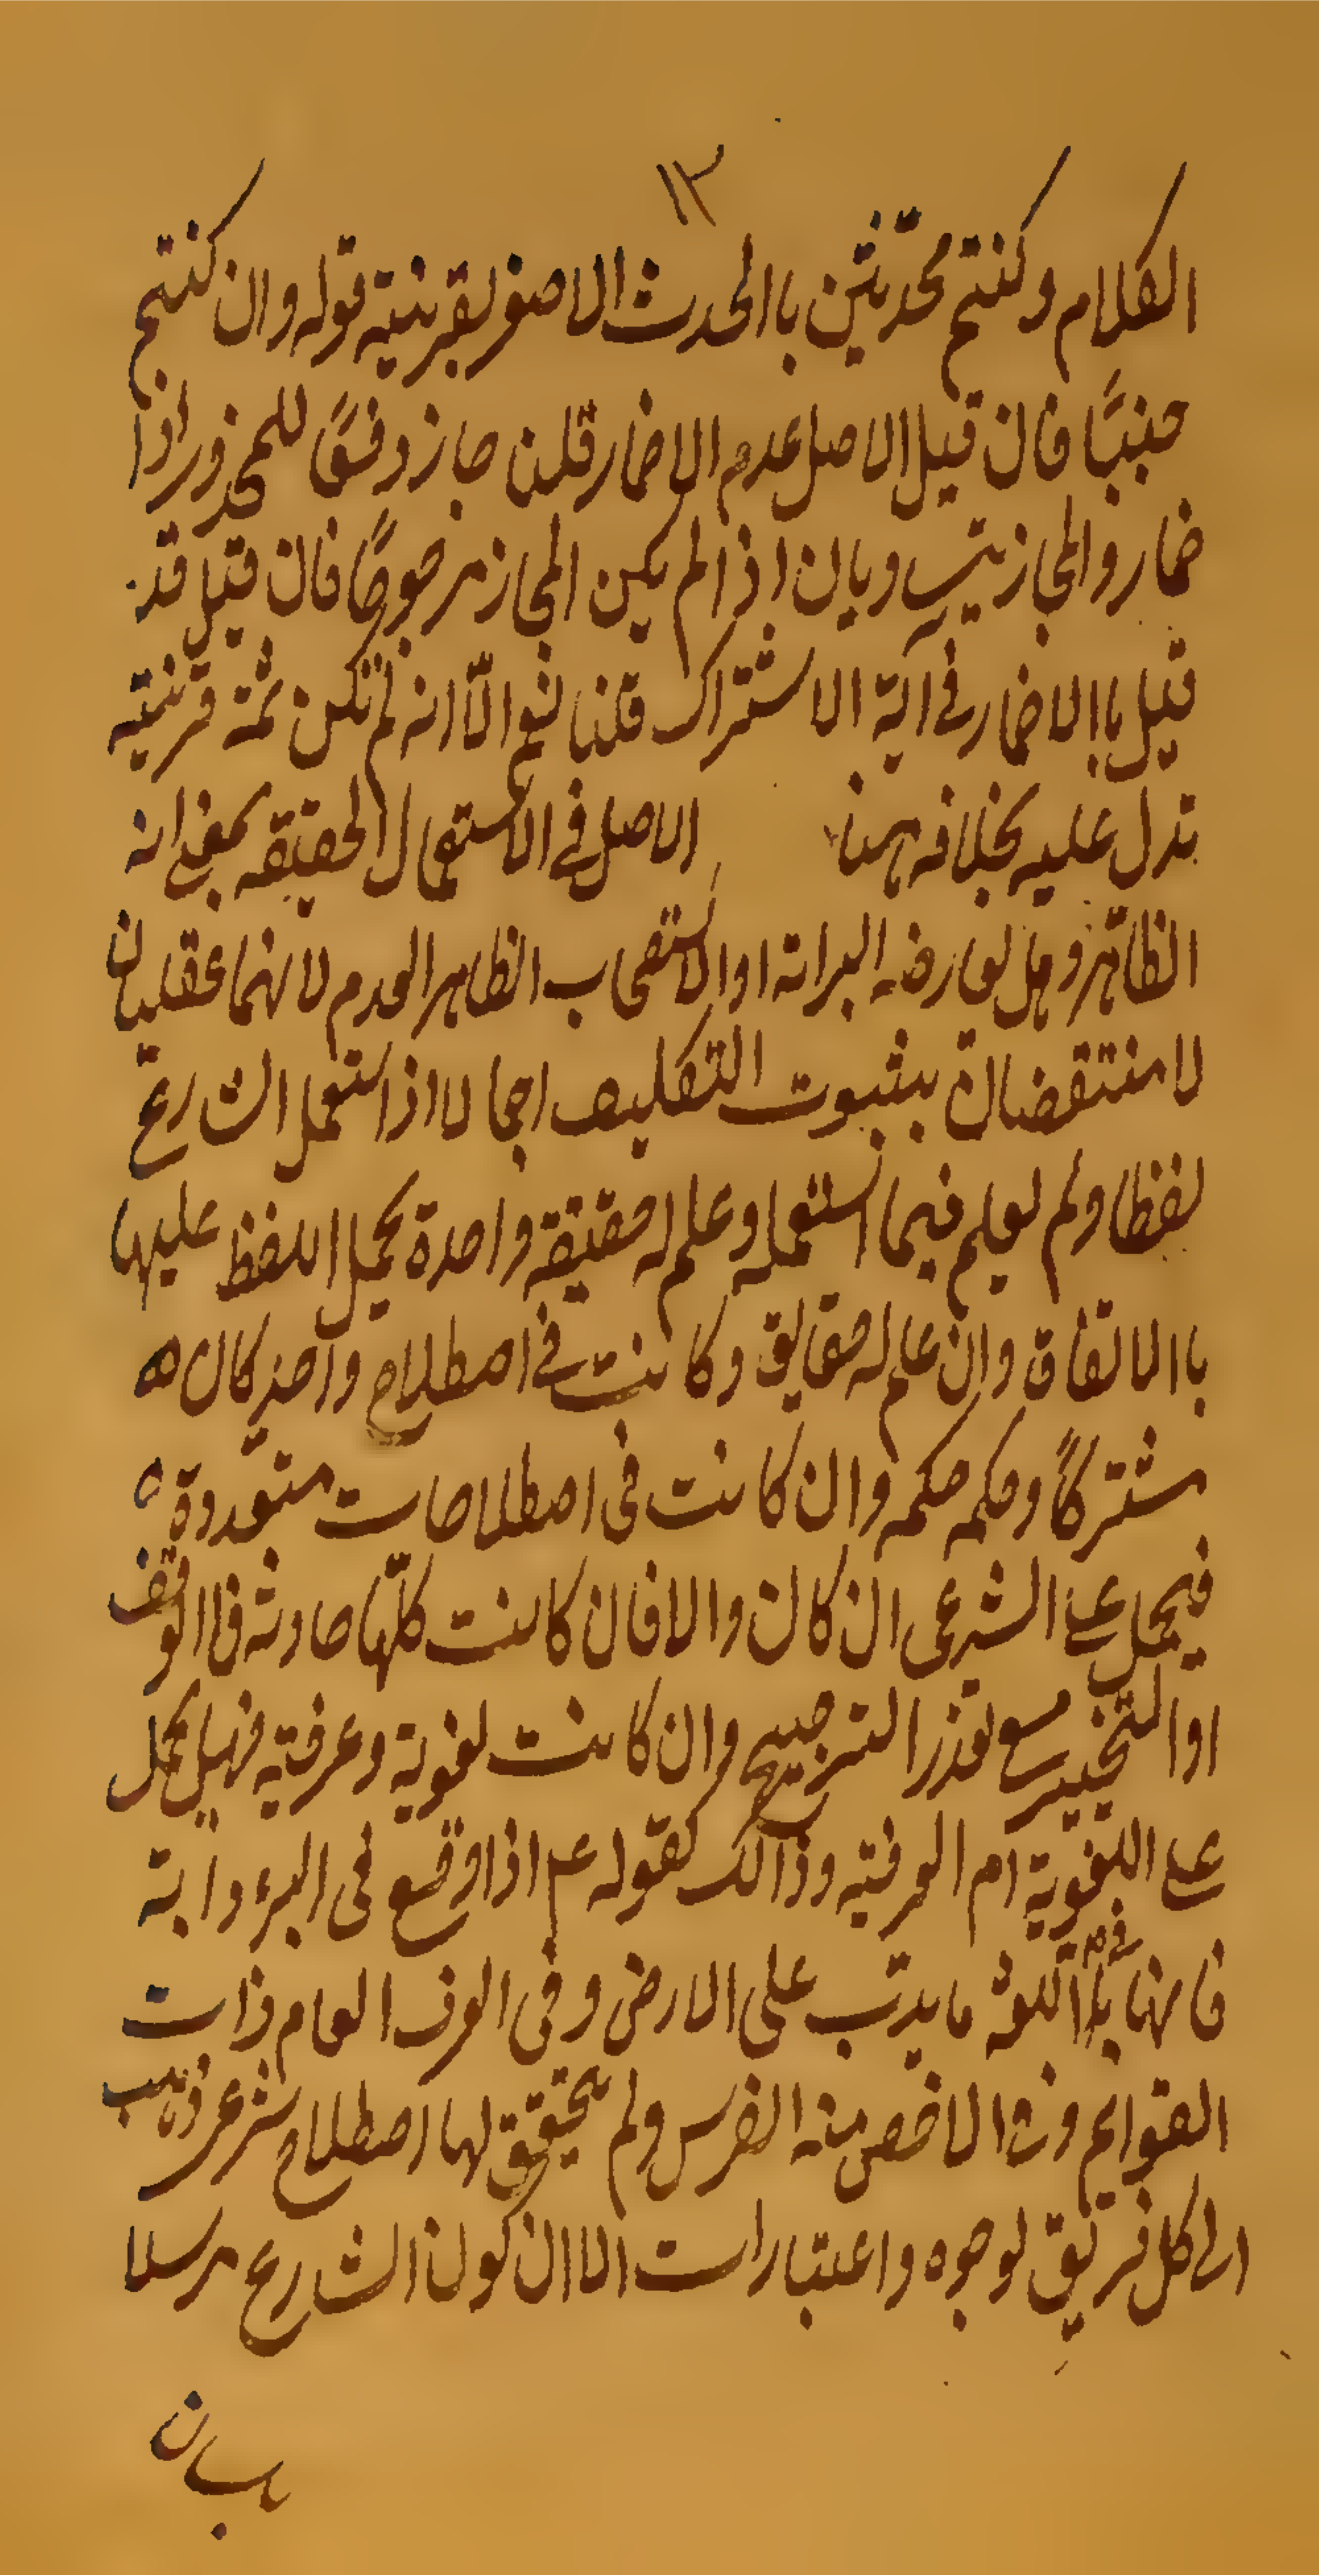 ١٣
الكلام وكنتم محدّثين باالحدث الاصغر بقرينية قوله وان كنتم
جنبًا فان قيل الاصل عدم الاضمار قلن جاز دفعًا للمحذور اذا
ضمار والمجاز يتسـ ويان اذا لم يكن المجاز مرجوحًا فان قيل قد
قيل باالاضمار في آية الاشتراك قلنا نعم الّا انه لم تكن ثمة قرينية
تدل عليه بخلافه ههنا الاصل في الاستعمال الحقيقه بمعنى انه
الظاهر وهل تعارضه البرائة اواالاستصحاب الظاهر العدم لانهما عقليان
لا منتقضان بثبوت التكليف اجمالا اذا استعمل الشارع
لفظا ولم يعلم فيما استعمله وعلم له حقيقة واحدة يحمل اللفظ عليها
باالاتفاق وان علم له حقايق وكانت في اصطلاح واحد كان
مشتركًا وحكمه حكمه وان كانت في اصطلاحات متعددة
فيحمل على الشرعى ان كان والا فان كانت كلّها حادثة فاالوقف
اواالتخيير مع تعذر الترجيح وان كانت لغوية وعرفية فهل يحمل
على اللغوية ام العرفية وذالك كقوله ع م اذا وقع فى البرء دابة
فانها في اللغة ما يدتب على الارض وفى العرف العام ذات
القوايم وفى الاخص منه الفرس ولم يتحقق لها اصطلاح شرعى فذهب
الى كل فريق لوجوه واعتبارات الا ان كون الشارع مرسلا
بلسان